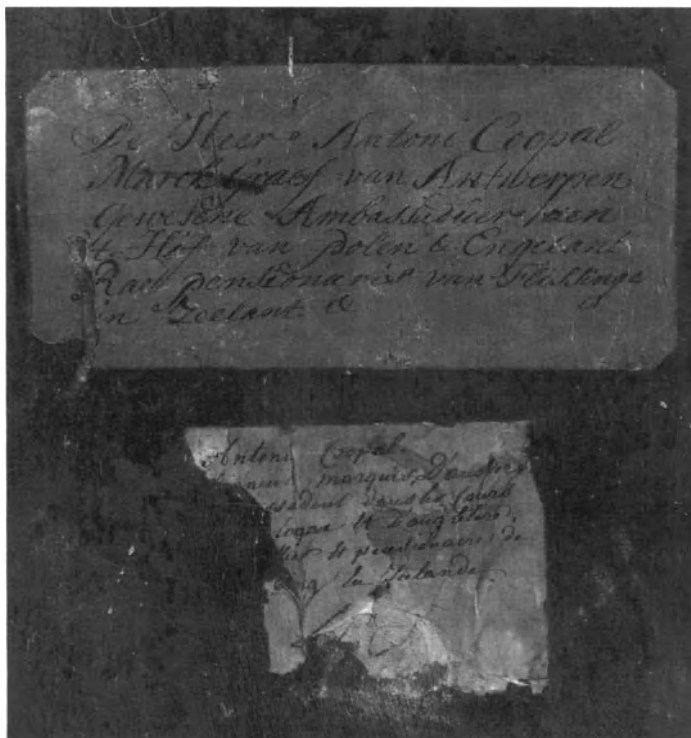 De Heer Antoni Coopal
Marck Graef van Antwerpen
Gewesene Ambassadieer
Hof van Polen & Engelant
Raet pensionaris van Flissinge
in Zeelant &
Antoni Coopal
marquis D'anvers
dans les Cours
& D'angleterre,
& pensionaire de
en Zeelande